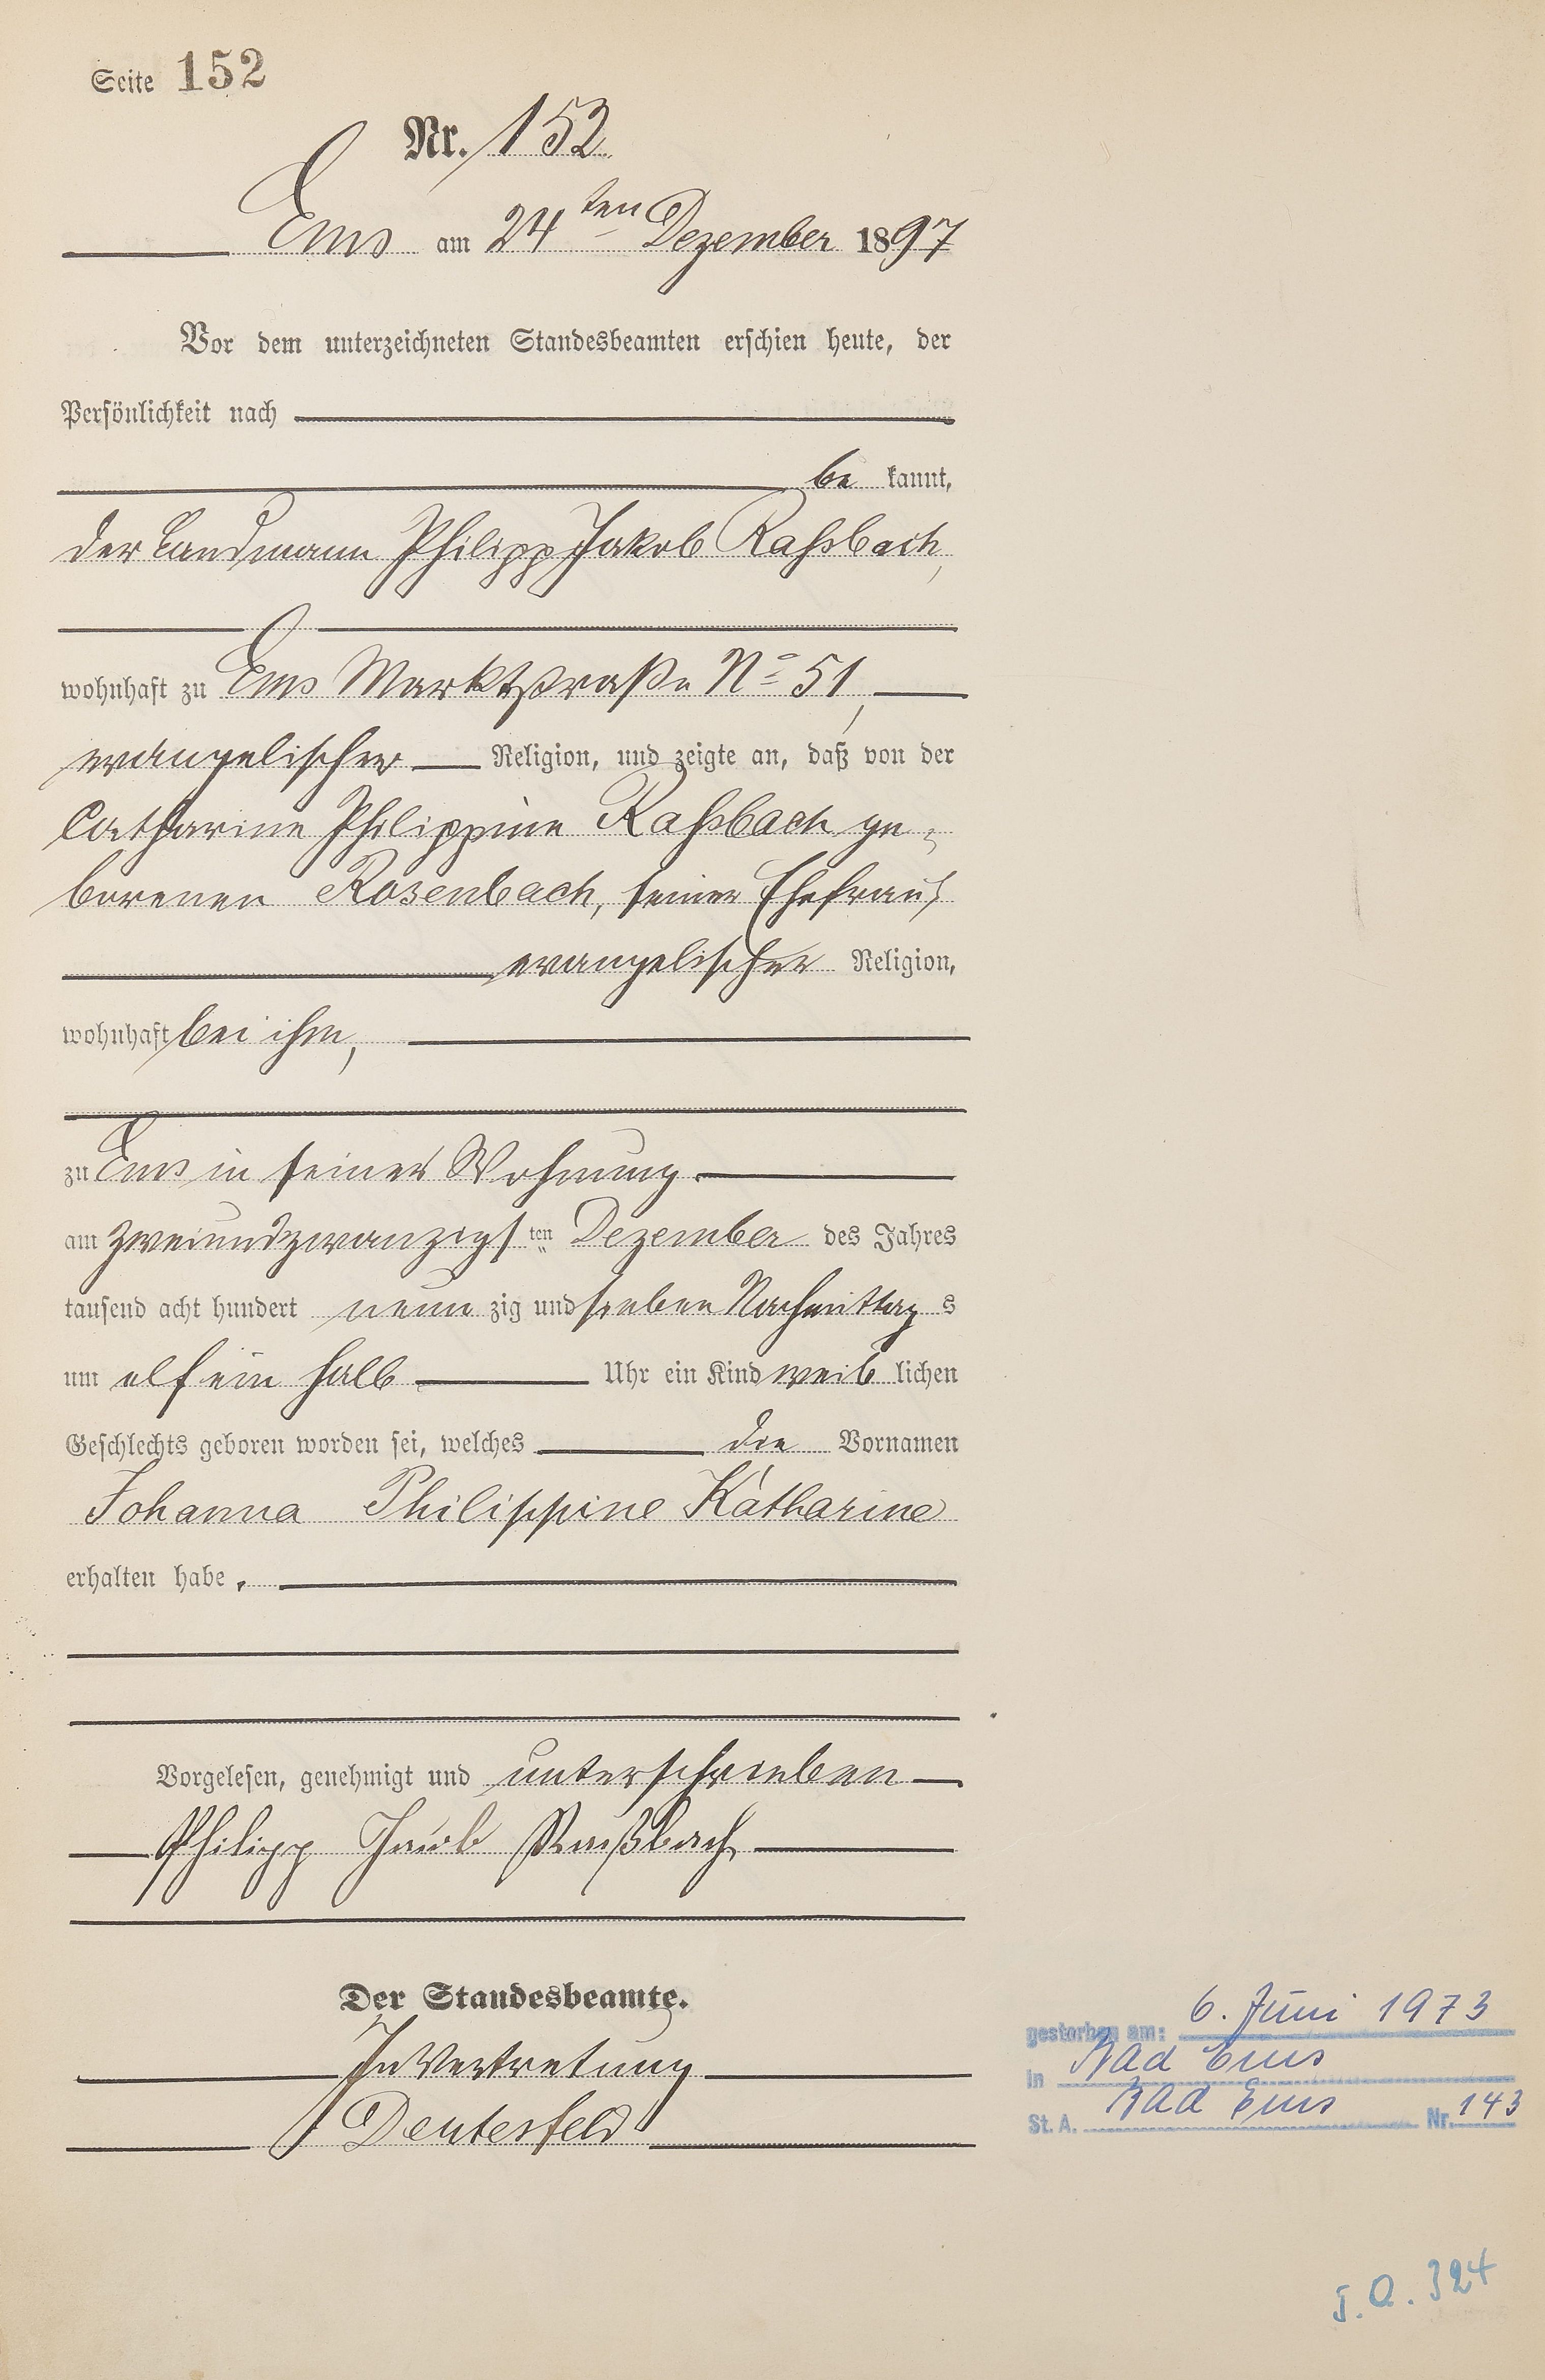 Seite 152
Nr. 152
Ems am 24ten Dezember 1897
Vor dem unterzeichneten Standesbeamten erschien heute, der
Persönlichkeit nach
be kannt,
der Landmann Philipp Jakob Raßbach,
wohnhaft zu Ems Marktstraße No 51,
evangelischer Religion, und zeigte an, daß von der
Catharine Philippine Raßbach ge-
borenen Rosenbach, seiner Ehefrau,
evangelischer Religion,
wohnhaft bei ihm,
zu Ems in seiner Wohnung
am zweiundzwanzigsten Dezember des Jahres
tausend acht hundert neun zig und sieben Nachmittag s
um elf ein halb Uhr ein Kind weib lichen
Geschlechts geboren worden sei, welches die Vornamen
Johanna Philippine Katharine
erhalten habe.
Vorgelesen, genehmigt und unterschrieben
Philipp Jacob Raßbach
Der Standesbeamte.
In Vertretung
Deutesfeld
gestorben am: 6. Juni 1973
in Bad Ems
St. A. Bad Ems Nr. 143
324